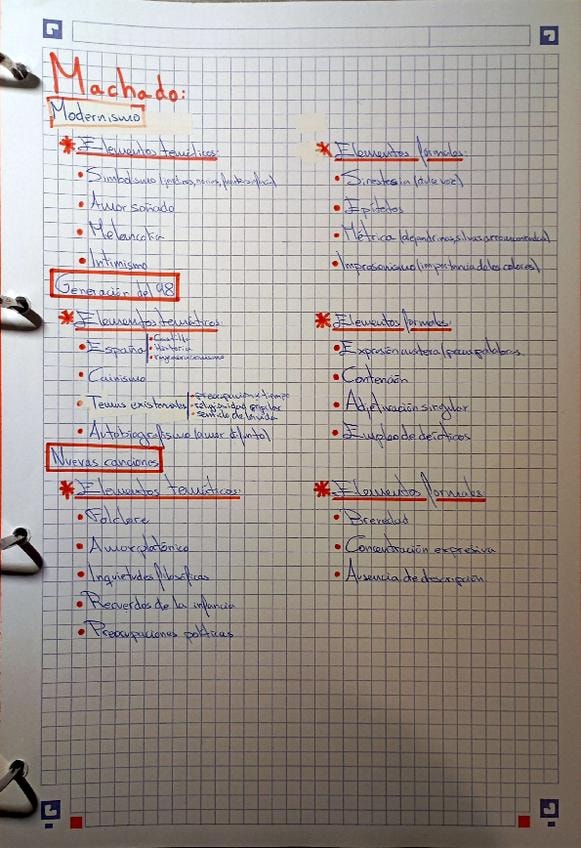 Machado:
Modernismo
* Elementos temáticos:
• Simbolismo (jardines, norias, fuentes
• Amor soñado
• Melancolía
• Intimismo
* Elementos formales:
• Sinestesia (dulce voz)
• Epítetos
• Métrica (alejandrinas, silvas arromanzadas)
• Impresonismo (importancia de los colores)
Generación del 98
* Elementos temáticos:
• España
• Castilla
• Historia
• Cainismo
• Temas existenciales
• preocupación x tiempo
• religiosidad
• sentido de la vida
• Autobiografismo (amor difunto)
* Elementos formales:
• Expresión austera/pocas palabras
• Contención
• Adjetivación singular
• Empleo de deícticos
Nuevas canciones
* Elementos temáticos:
• Folclore
• Amor platónico
• Inquietudes filosóficas
• Recuerdos de la infancia
• Preocupaciones políticas
* Elementos formales
• Brevedad
• Concentración expresiva
• Ausencia de descripción